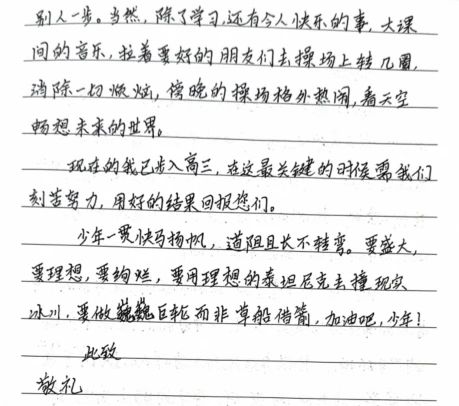 别人一步。当然，除了学习，还有令人快乐的事，大课
间的音乐，拉着要好的朋友们去操场上转几圈，
消除一切烦恼，傍晚的操场格外热闹，看天空
畅想未来的世界。
现在的我已步入高三，在这最关键的时候需我们
刻苦努力，用好的结果回报您们。
少年一贯快马扬帆，道阻且长不转弯。要盛大，
要理想，要绚烂，要用理想的泰坦尼克去撞现实
冰川，要做巍巍巨轮而非草船借箭，加油吧，少年！
此致
敬礼